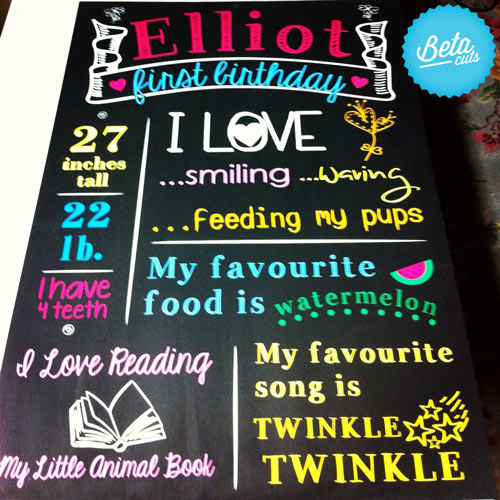 Elliot
first birthday
Beta
cuts
27
inches
tall
22
lb.
I have
4 teeth
I LOVE
...smiling ...waving
...feeding my pups
My favourite
food is watermelon
I Love Reading
My Little Animal Book
My favourite
song is
TWINKLE
TWINKLE